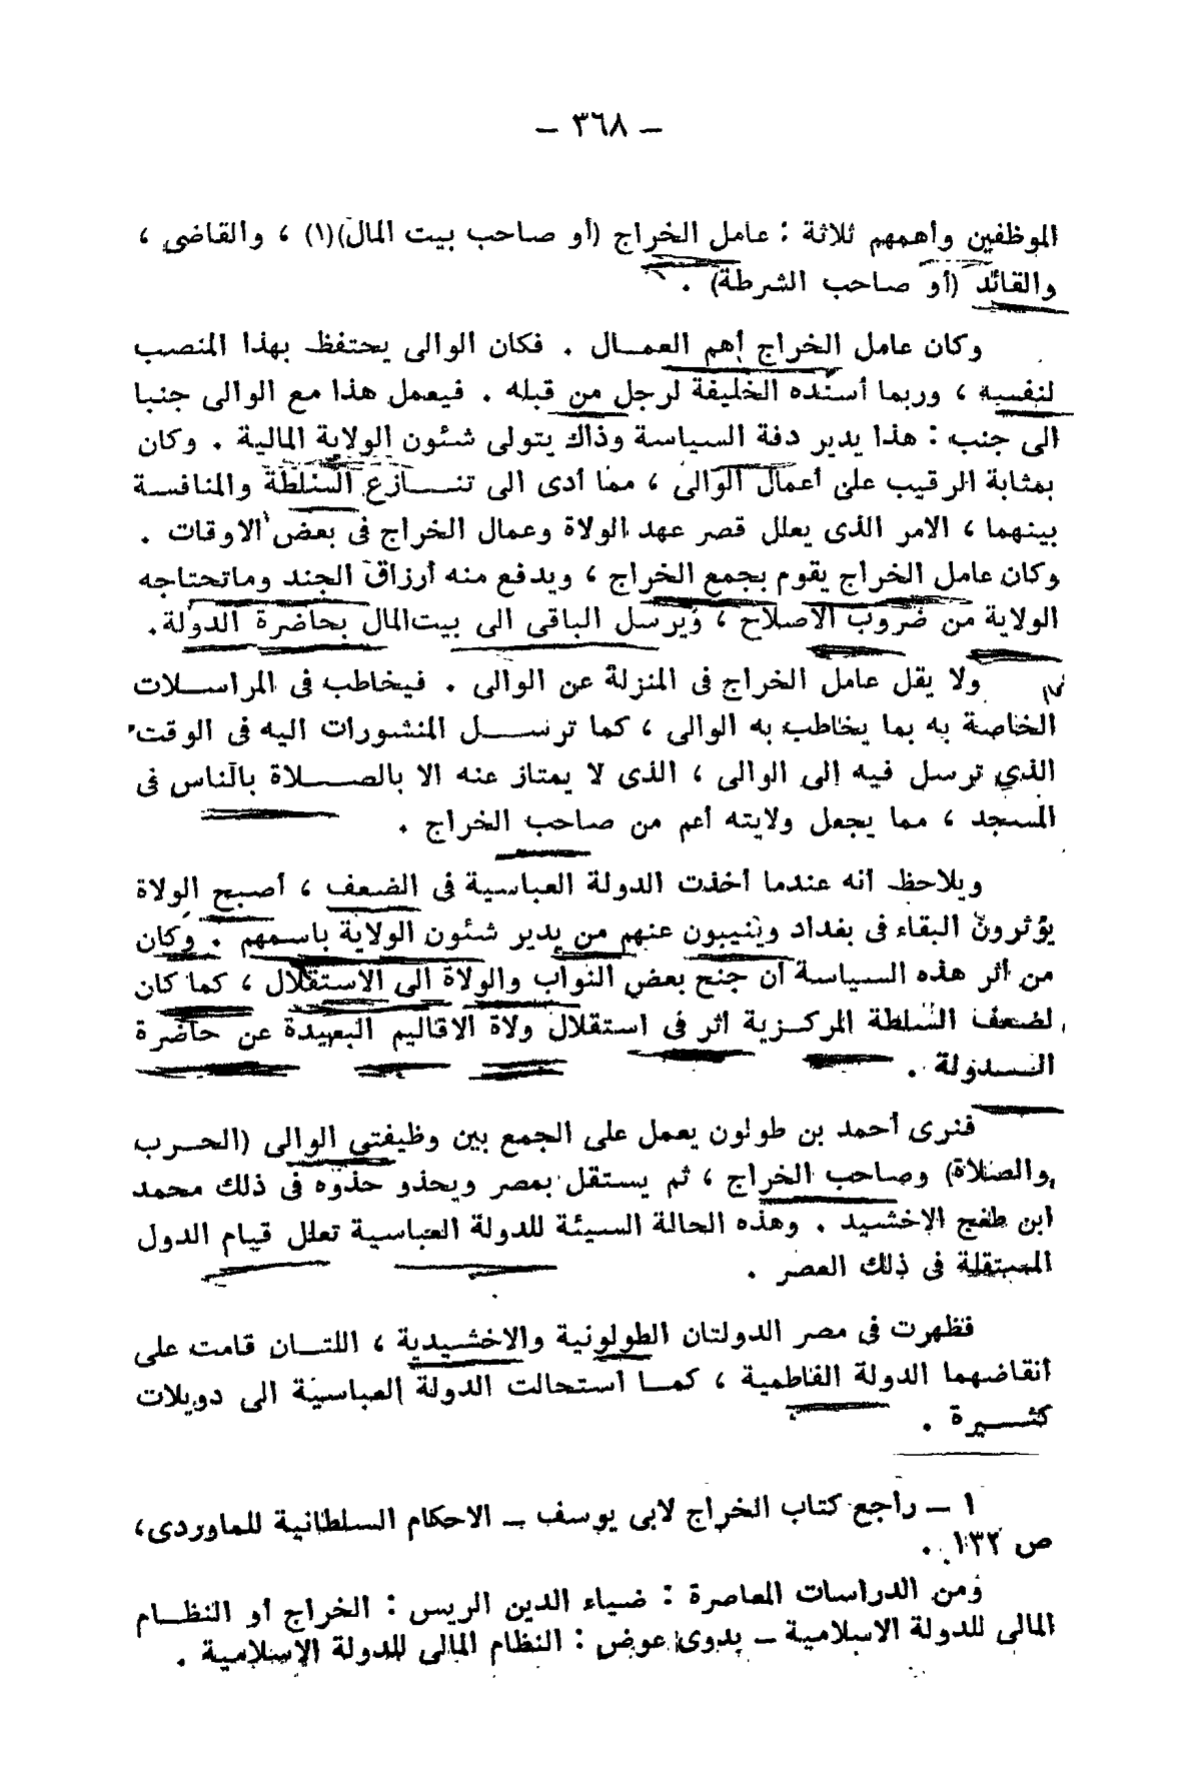 — ٣٦٨ —
الموظفين وأهمهم ثلاثة : عامل الخراج (أو صاحب بيت المال)(١) ، والقاضى ،
والقائد (أو صاحب الشرطة) .
وكان عامل الخراج أهم العمـــال . فكان الوالى يحتفظ بهذا المنصب
لنفسه ، وربما أسنده الخليفة لرجل من قبله . فيعمل هذا مع الوالى جنبا
الى جنب : هذا يدير دفة السياسة وذاك يتولى شئون الولاية المالية . وكان
بمثابة الرقيب على أعمال الوالى ، مما أدى الى تنـــازع السلطة والمنافسة
بينهما ، الامر الذى يعلل قصر عهد الولاة وعمال الخراج فى بعض الاوقات .
وكان عامل الخراج يقوم بجمع الخراج ، ويدفع منه أرزاق الجند وماتحتاجه
الولاية من ضروب الاصلاح ، ويرسل الباقى الى بيت‌المال بحاضرة الدولة .
ولا يقل عامل الخراج فى المنزلة عن الوالى . فيخاطب فى المراســلات
الخاصة به بما يخاطب به الوالى ، كما ترســـل المنشورات اليه فى الوقت
الذي ترسل فيه إلى الوالى ، الذى لا يمتاز عنه الا بالصـــلاة بالناس فى
المسجد ، مما يجعل ولايته أعم من صاحب الخراج .
ويلاحظ أنه عندما أخذت الدولة العباسية فى الضعف ، أصبح الولاة
يؤثرون البقاء فى بغداد وينيبون عنهم من يدير شئون الولاية باسمهم . وكان
من أثر هذه السياسة أن جنح بعض النواب والولاة الى الاستقلال ، كما كان
لضعف السلطة المركــزية أثر فى استقلال ولاة الاقاليم البعيدة عن حاضرة
الـــدولة .
فنرى أحمد بن طولون يعمل على الجمع بين وظيفتي الوالى (الحــرب
والصلاة) وصاحب الخراج ، ثم يستقل بمصر ويحذو حذوه فى ذلك محمد
ابن طغج الإخشيد . وهذه الحالة السيئة للدولة العباسية تعلل قيام الدول
المستقلة فى ذلك العصر .
فظهرت فى مصر الدولتان الطولونية والاخشيدية ، اللتــان قامت على
أنقاضهما الدولة الفاطمية ، كمــا استحالت الدولة العباسية الى دويلات
كثـــيرة .
١ — راجع كتاب الخراج لابى يوسف — الاحكام السلطانية للماوردى،
ص ١٣٢ .
ومن الدراسات المعاصرة : ضياء الدين الريس : الخراج أو النظــام
المالى للدولة الاسلامية — بدوى عوض : النظام المالى للدولة الإسلامية .